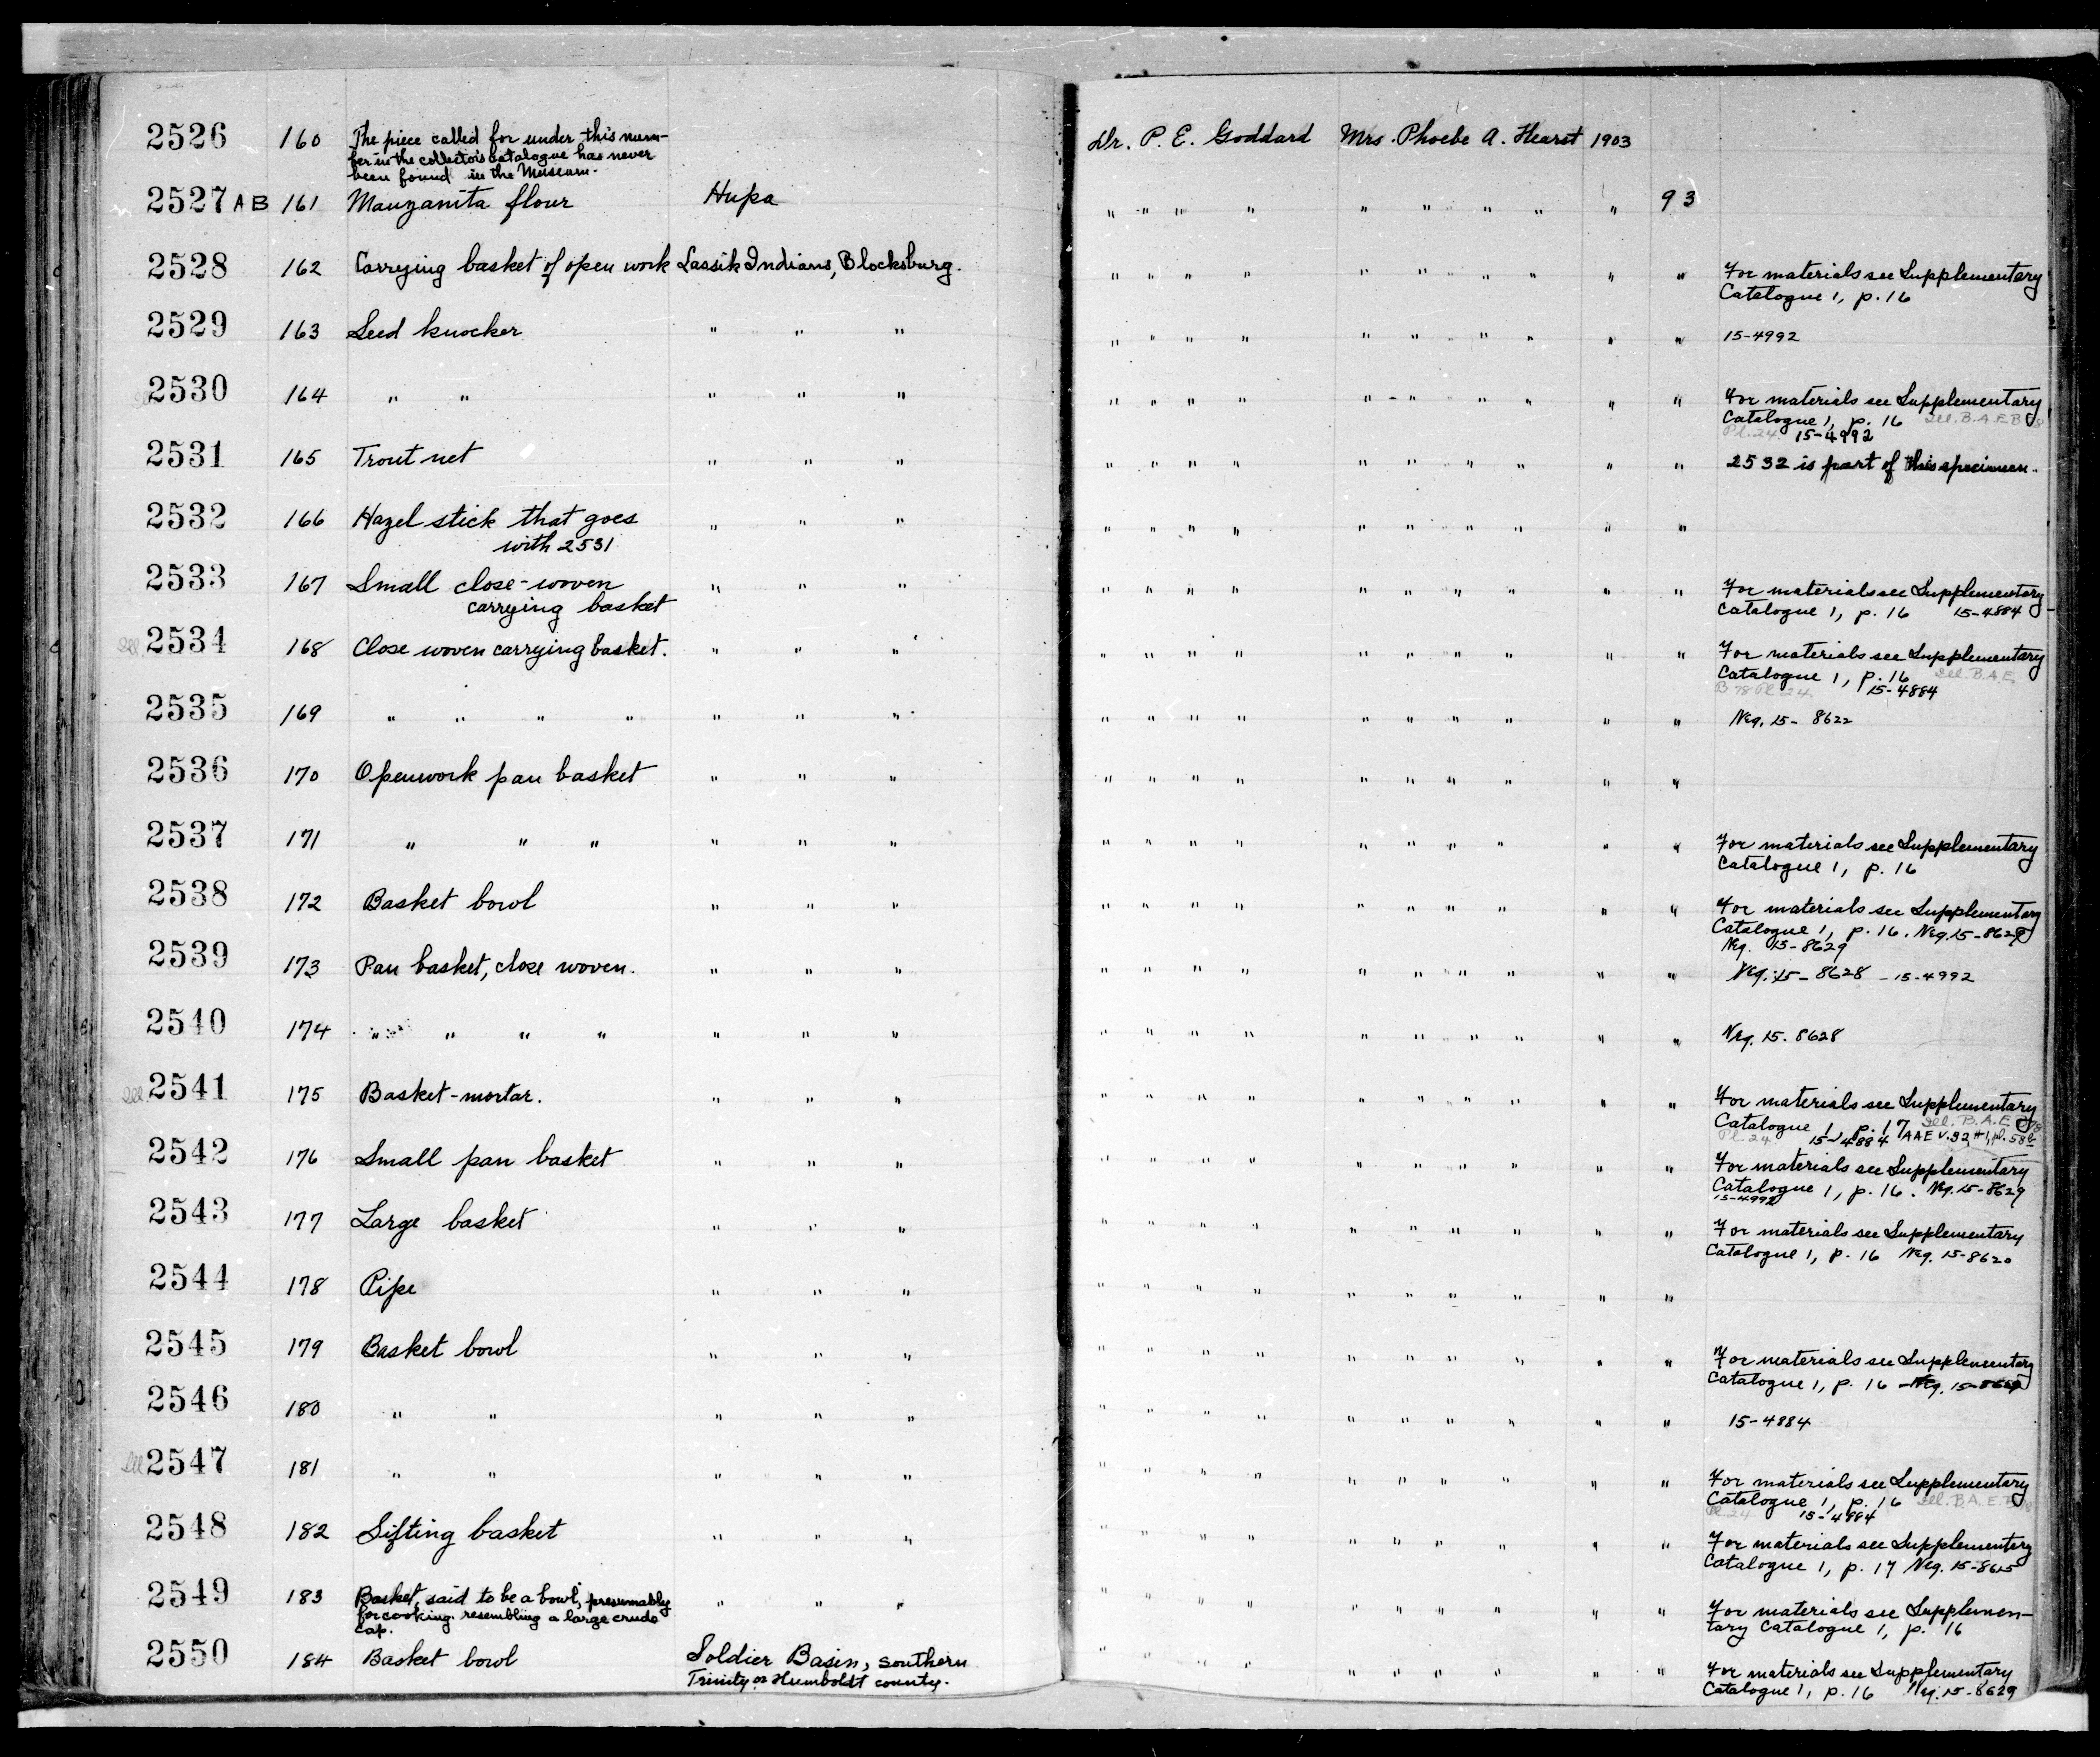 2526 160 The piece called for under this num-
ber in the collector's catalogue has never
been found in the Museum. Dr. P. E. Goddard Mrs. Phoebe A. Hearst 1903
2527 A B 161 Manzanita flour Hupa " " " " " " " " " 93
2528 162 Carrying basket of open work Lassik Indians, Blocksburg. " " " " " " " " " " For materials see Supplementary
Catalogue 1, p. 16
2529 163 Seed knocker " " " " " " " " " " " " " 15-4992
2530 164 " " " " " " " " " " " " " " " For materials see Supplementary
Catalogue 1, p. 16 Ill. B.A.E. B 78
Pl. 24 15-4992
2531 165 Trout net " " " " " " " " " " " " " 2532 is part of this specimen.
2532 166 Hazel stick that goes
with 2531 " " " " " " " " " " " " "
2533 167 Small close-woven
carrying basket " " " " " " " " " " " " " For materials see Supplementary
Catalogue 1, p. 16 15-4884
Ill. 2534 168 Close woven carrying basket. " " " " " " " " " " " " " For materials see Supplementary
Catalogue 1, p. 16 Ill. B.A.E.
B 78 Pl. 24 15-4884
2535 169 " " " " " " " " " " " " " " " " " Neg. 15-8622
2536 170 Openwork pan basket " " " " " " " " " " " " "
2537 171 " " " " " " " " " " " " " " " " For materials see Supplementary
Catalogue 1, p. 16
2538 172 Basket bowl " " " " " " " " " " " " " For materials see Supplementary
Catalogue 1, p. 16. Neg. 15-8629
Neg. 15-8629
2539 173 Pan basket, close woven. " " " " " " " " " " " " " Neg. 15-8628 - 15-4992
2540 174 " " " " " " " " " " " " " " " " " Neg. 15. 8628
Ill. 2541 175 Basket-mortar. " " " " " " " " " " " " " For materials see Supplementary
Catalogue 1, p. 17 Ill. B.A.E. B 78
Pl. 24 15-4884 AAE V. 32, #1, pl. 58
2542 176 Small pan basket " " " " " " " " " " " " " For materials see Supplementary
Catalogue 1, p. 16. Neg. 15-8629
15-4992
2543 177 Large basket " " " " " " " " " " " " " For materials see Supplementary
Catalogue 1, p. 16 Neg. 15-8620
2544 178 Pipe " " " " " " " " " " " " "
2545 179 Basket bowl " " " " " " " " " " " " " For materials see Supplementary
Catalogue 1, p. 16 Neg. 15-
2546 180 " " " " " " " " " " " " " " " 15-4884
Ill 2547 181 " " " " " " " " " " " " " " " For materials see Supplementary
Catalogue 1, p. 16 Ill. B.A.E. B 78
Pl. 24 15-4884
2548 182 Sifting basket " " " " " " " " " " " " " For materials see Supplementary
Catalogue 1, p. 17 Neg. 15-8615
2549 183 Basket, said to be a bowl, presumably
for cooking. resembling a large crude
cap. " " " " " " " " " " " " " For materials see Supplemen-
tary Catalogue 1, p. 16
2550 184 Basket bowl Soldier Basin, southern
Trinity or Humboldt county. " " " " " " " " " For materials see Supplementary
Catalogue 1, p. 16 Neg. 15-8629